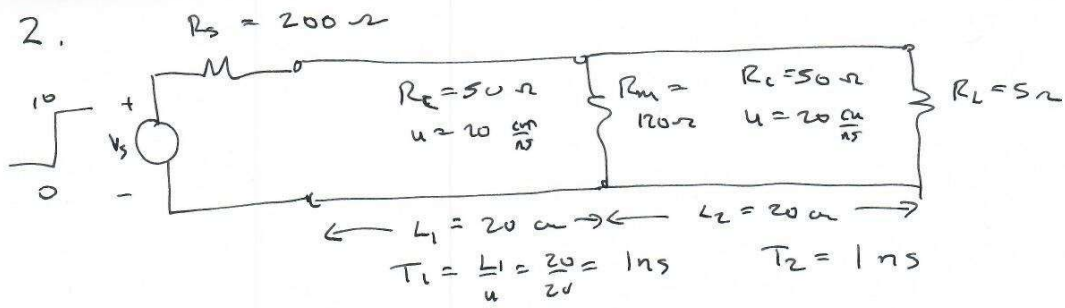 2.
Rs = 200 Ω
10
0
+
Vs
-
Rc = 50 Ω
u = 20 cm/ns
Rm =
120 Ω
Rc = 50 Ω
u = 20 cm/ns
RL = 5 Ω
← L1 = 20 cm →← L2 = 20 cm →
T1 = L1/u = 20/20 = 1ns
T2 = 1 ns